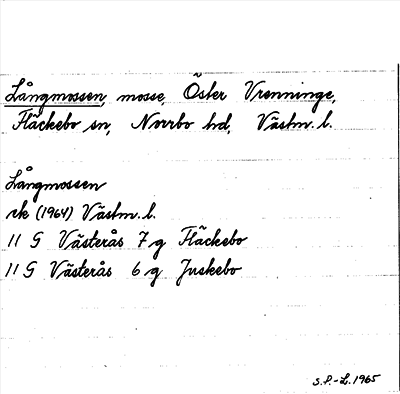 Långmossen, mosse, Öster Vrenninge,
Fläckebo sn, Norrbo hd, Västm. l.
Långmossen
rk (1964) Västm. l.
11 G Västerås 7 g Fläckebo
11 G Västerås 6 g Juskebo
S.P.-L. 1965